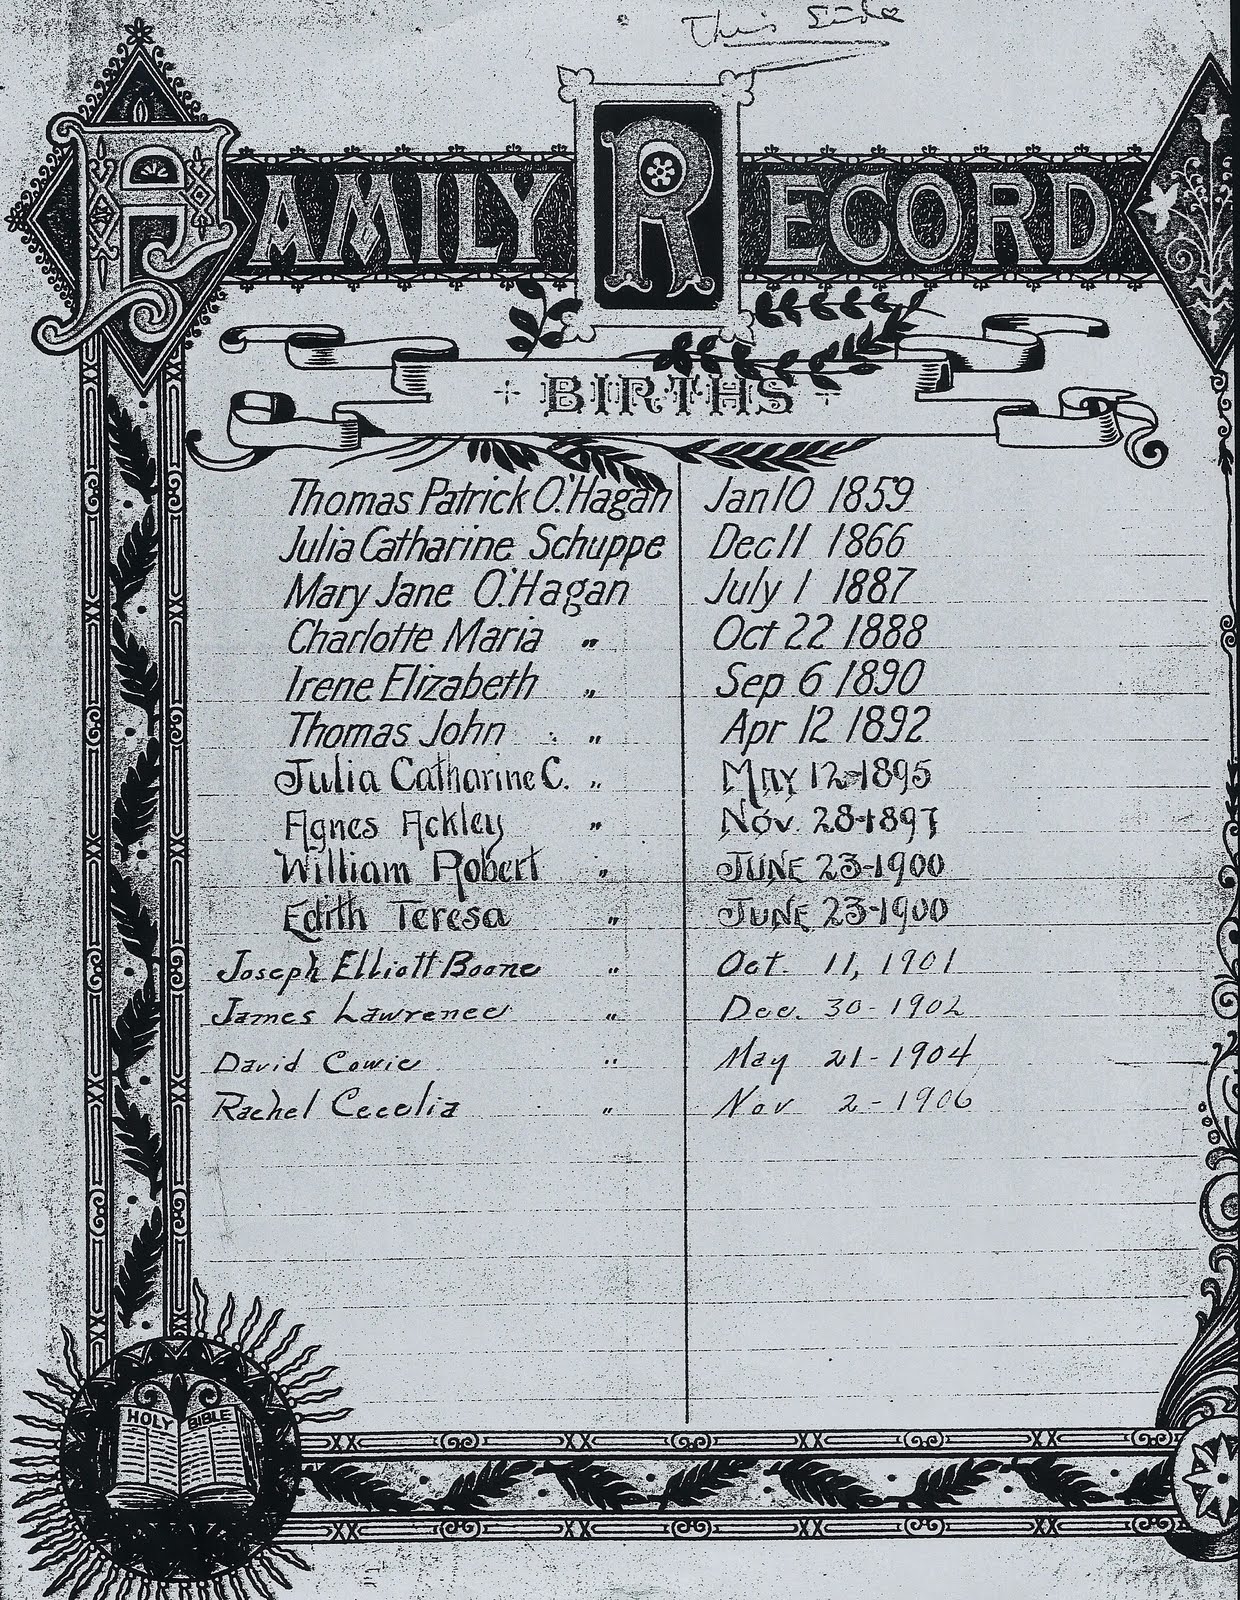 This Side
FAMILY RECORD
BIRTHS
Thomas Patrick O'Hagan Jan 10 1859
Julia Catharine Schuppe Dec 11 1866
Mary Jane O'Hagan July 1 1887
Charlotte Maria " Oct 22 1888
Irene Elizabeth " Sep 6 1890
Thomas John " Apr 12 1892
Julia Catharine C. " May 12-1895
Agnes Ackley " Nov. 28-1897
William Robert " JUNE 23-1900
Edith Teresa " JUNE 23-1900
Joseph Elliott Boone " Oct. 11, 1901
James Lawrence " Dec. 30-1902
David Cowie " May 21-1904
Rachel Cecelia " Nov 2-1906
HOLY BIBLE